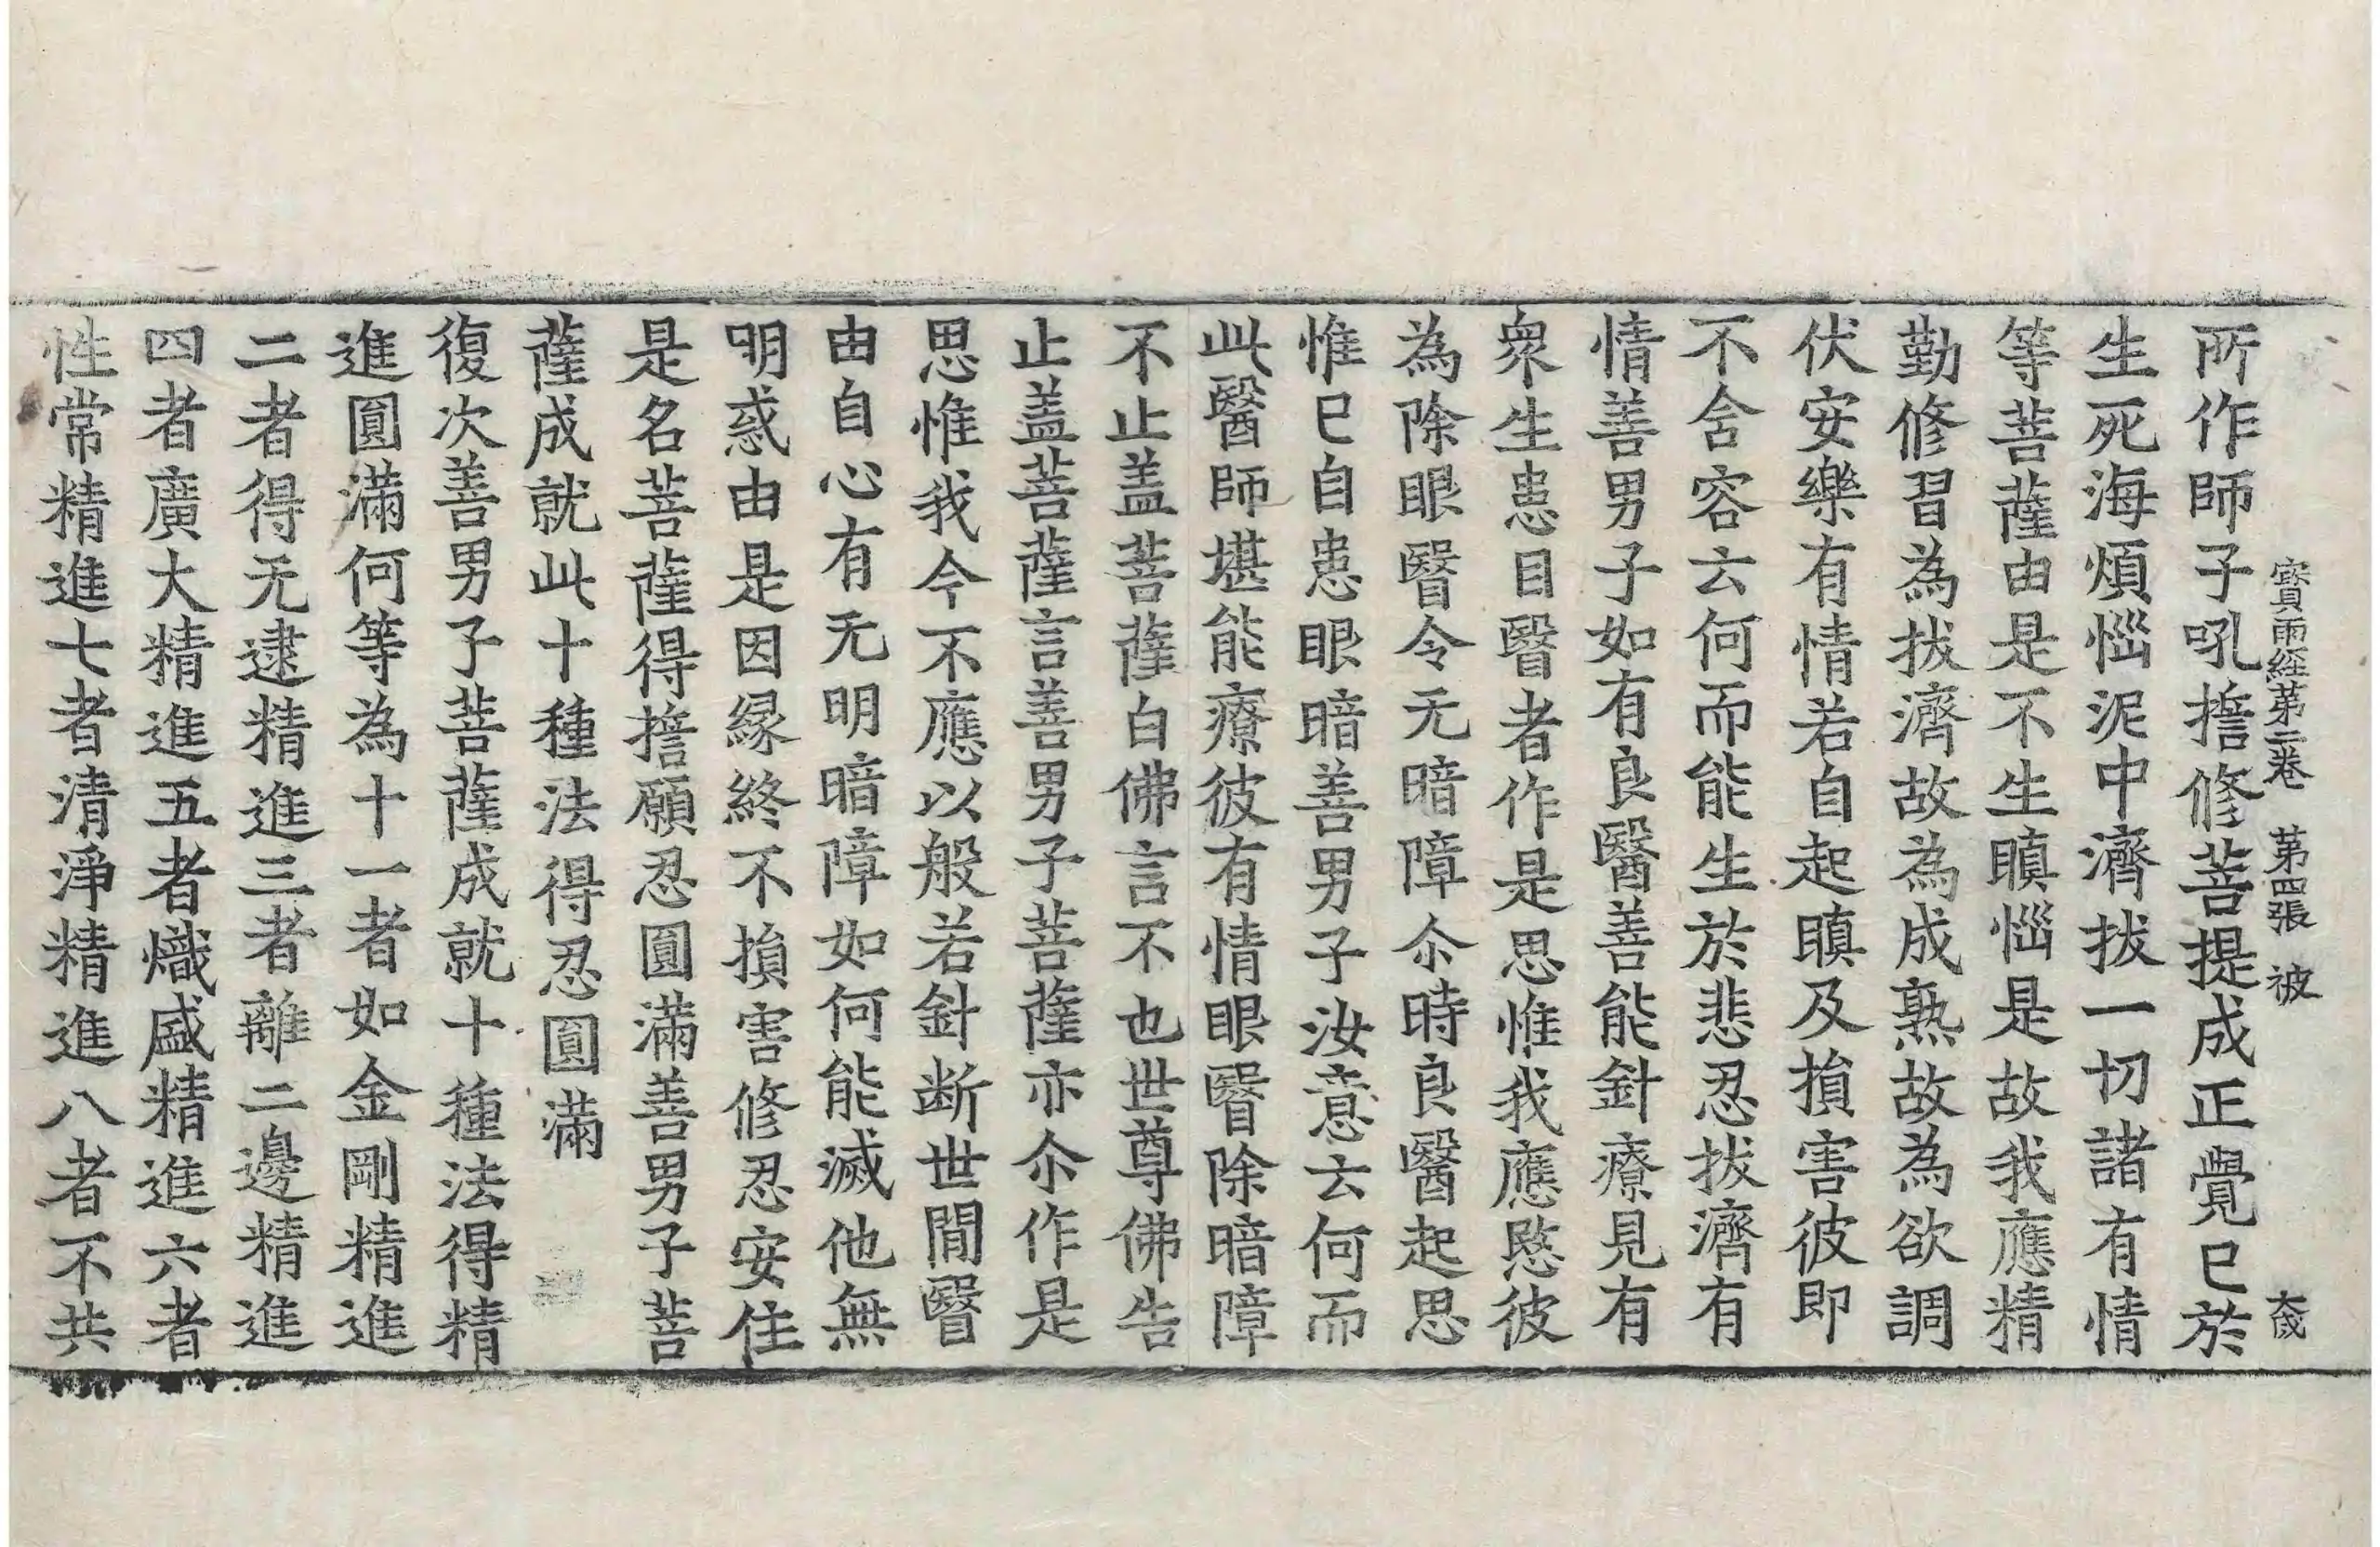 寳雨経第二卷　第四張　被　大𢦙
所作師子吼擔修菩提成正覺已於
生死海煩惱泥中濟拔一切諸有情
等菩薩由是不生瞋惱是故我應精
勤修習為拔濟故為成熟故為欲調
伏安樂有情若自起瞋及損害彼即
不舍容云何而能生於悲忍拔濟有
情善男子如有良醫善能針療見有
衆生患目瞖者作是思惟我應愍彼
為除眼瞖令无暗障尒時良醫起思
惟已自患眼暗善男子汝意云何而
此醫師堪能療彼有情眼瞖除暗障
不止盖菩薩白佛言不也世尊佛告
止盖菩薩言善男子菩薩亦尒作是
思惟我今不應以般若針断世間瞖
由自心有无明暗障如何能滅他無
明惑由是因縁終不損害修忍安住
是名菩薩得擔願忍圓滿善男子菩
薩成就此十種法得忍圓滿
復次善男子菩薩成就十種法得精
進圓滿何等為十一者如金剛精進
二者得无逮精進三者離二邊精進
四者廣大精進五者熾盛精進六者
性常精進七者清淨精進八者不共